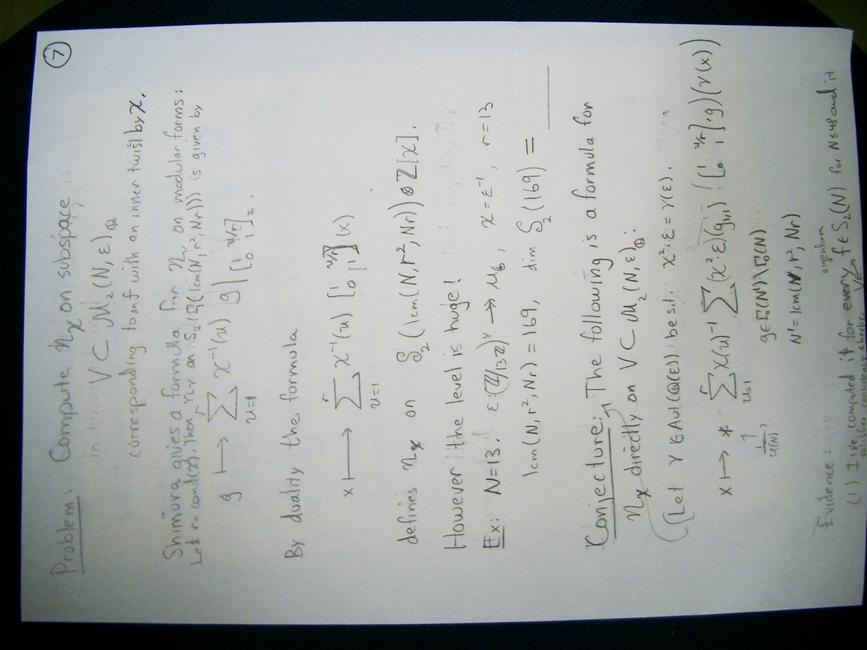 ⑦
Problem: Compute η_χ on subspace
V ⊂ M_2(N, ε)_Q
corresponding to nf with an inner twist by χ.
Shimura gives a formula for η_χ on modular forms:
Let r = cond(χ). Then η_χ on S_2(Γ_1(lcm(N, r², Nr))) is given by
g ↦ Σ_{u=1}^{r} χ^{-1}(u) g | [1 u/r; 0 1]_2.
By duality the formula
x ↦ Σ_{u=1}^{r} χ^{-1}(u) [1 u/r; 0 1](x)
defines η_χ on S_2(lcm(N, r², Nr)) ⊗ Z[χ].
However the level is huge!
Ex: N=13. ε: (Z/13Z)^× → μ_6, χ = ε^{-1}, r=13
lcm(N, r², Nr) = 169, dim S_2(169) = ____
Conjecture: The following is a formula for
η_χ directly on V ⊂ M_2(N, ε)_Q:
(Let γ ∈ Aut(Q(ε)) be s.t. χ²·ε = γ(ε).
x ↦ * Σ_{u=1}^{r} χ(u)^{-1} Σ (χ²·ε)(g_{1,1}) ([1 u/r; 0 1]·g)(γ(x))
g ∈ Γ_0(N')\Γ_0(N)
N' = lcm(N, r², Nr)
Evidence:
(1) I've computed it for every eigenform f ∈ S_2(N) for N ≤ and it